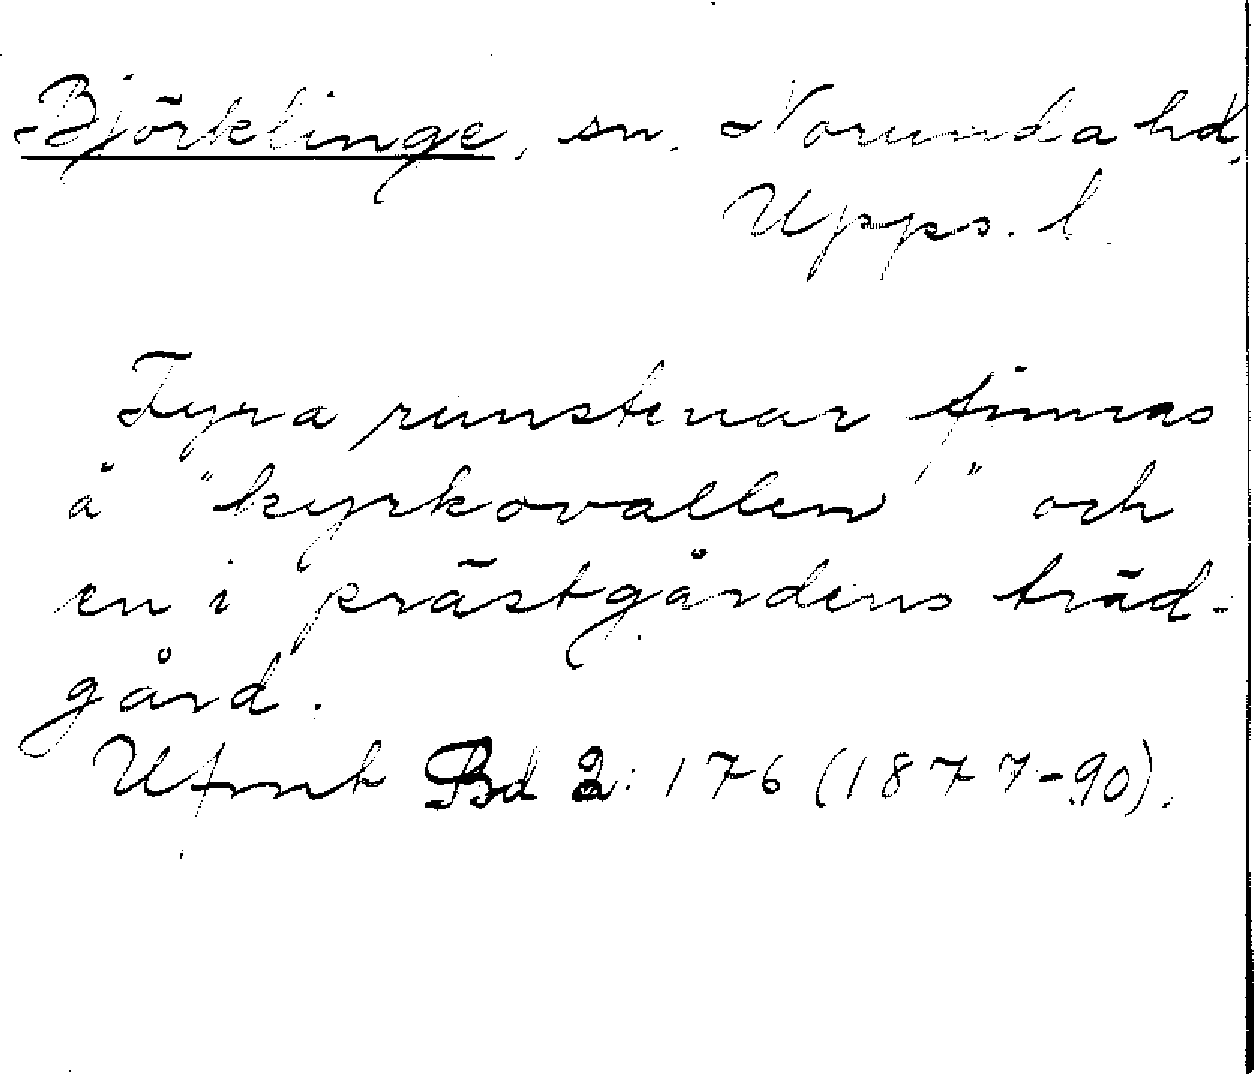 Björklinge, sn. Norunda hd,
Upps. l.
Fyra runstenar finnas
å "kyrkovallen" och
en i prästgårdens träd-
gård.
Ufmt Bd 2: 176 (1877-90).